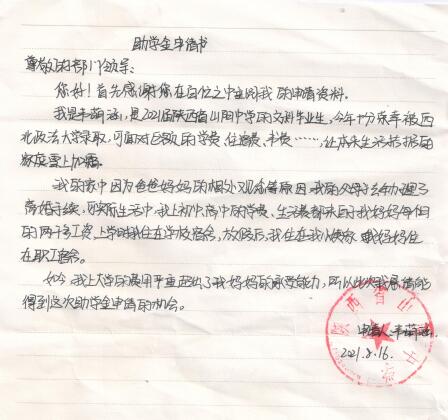 助学金申请书
尊敬的部门领导:
您好!首先感谢你在百忙之中查阅我的申请资料.
我是韦萌涵,是2021届陕西省山阳中学的文科毕业生,今年十分荣幸被西
北政法大学录取,可面对巨额的学费、住宿费、书费……,让本来生活拮据的
家庭雪上加霜.
我的家中因为爸爸妈妈的相处观念等原因 我的父母去年办理了
离婚手续,现实生活中,我上初中高中的学费、生活费都来自我妈妈每月
的两千多工资,上学时我住在学校宿舍,放假后,我住在我小姨家 我妈妈住
在职工宿舍.
如今,我上大学的费用严重超出了我妈妈的承受能力,所以此次我恳请能
得到这次助学金申请的机会.
申请人:韦萌涵
2021.8.16.
陕西省山 中学